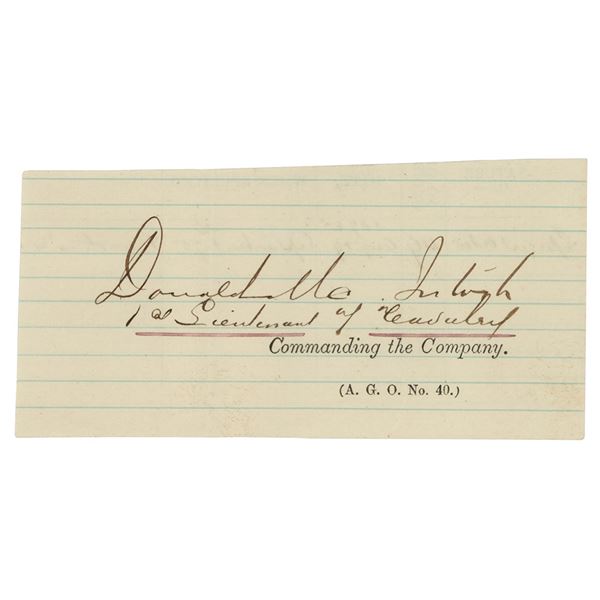 Donald Mc Intosh
1st Lieutenant of Cavalry
Commanding the Company.
(A. G. O. No. 40.)